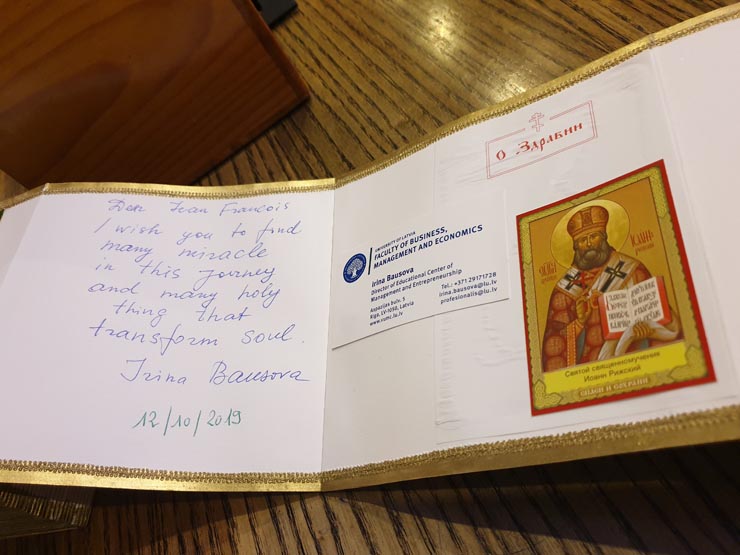 Dear Jean Francois
I wish you to find
many miracle
in this journey
and many holy
thing that
transform soul.
Irina Bausova
12/10/2019
UNIVERSITY OF LATVIA
FACULTY OF BUSINESS,
MANAGEMENT AND ECONOMICS
Irina Bausova
Director of Educational Center of
Management and Entrepreneurship
Aspazijas bulv. 5
Riga, LV-1050, Latvia
www.vumc.lu.lv
Tel.: +371 29171728
irina.bausova@lu.lv
profesionalis@lu.lv
О Здравии
Святой священномученик
Иоанн Рижский
СПАСИ И СОХРАНИ